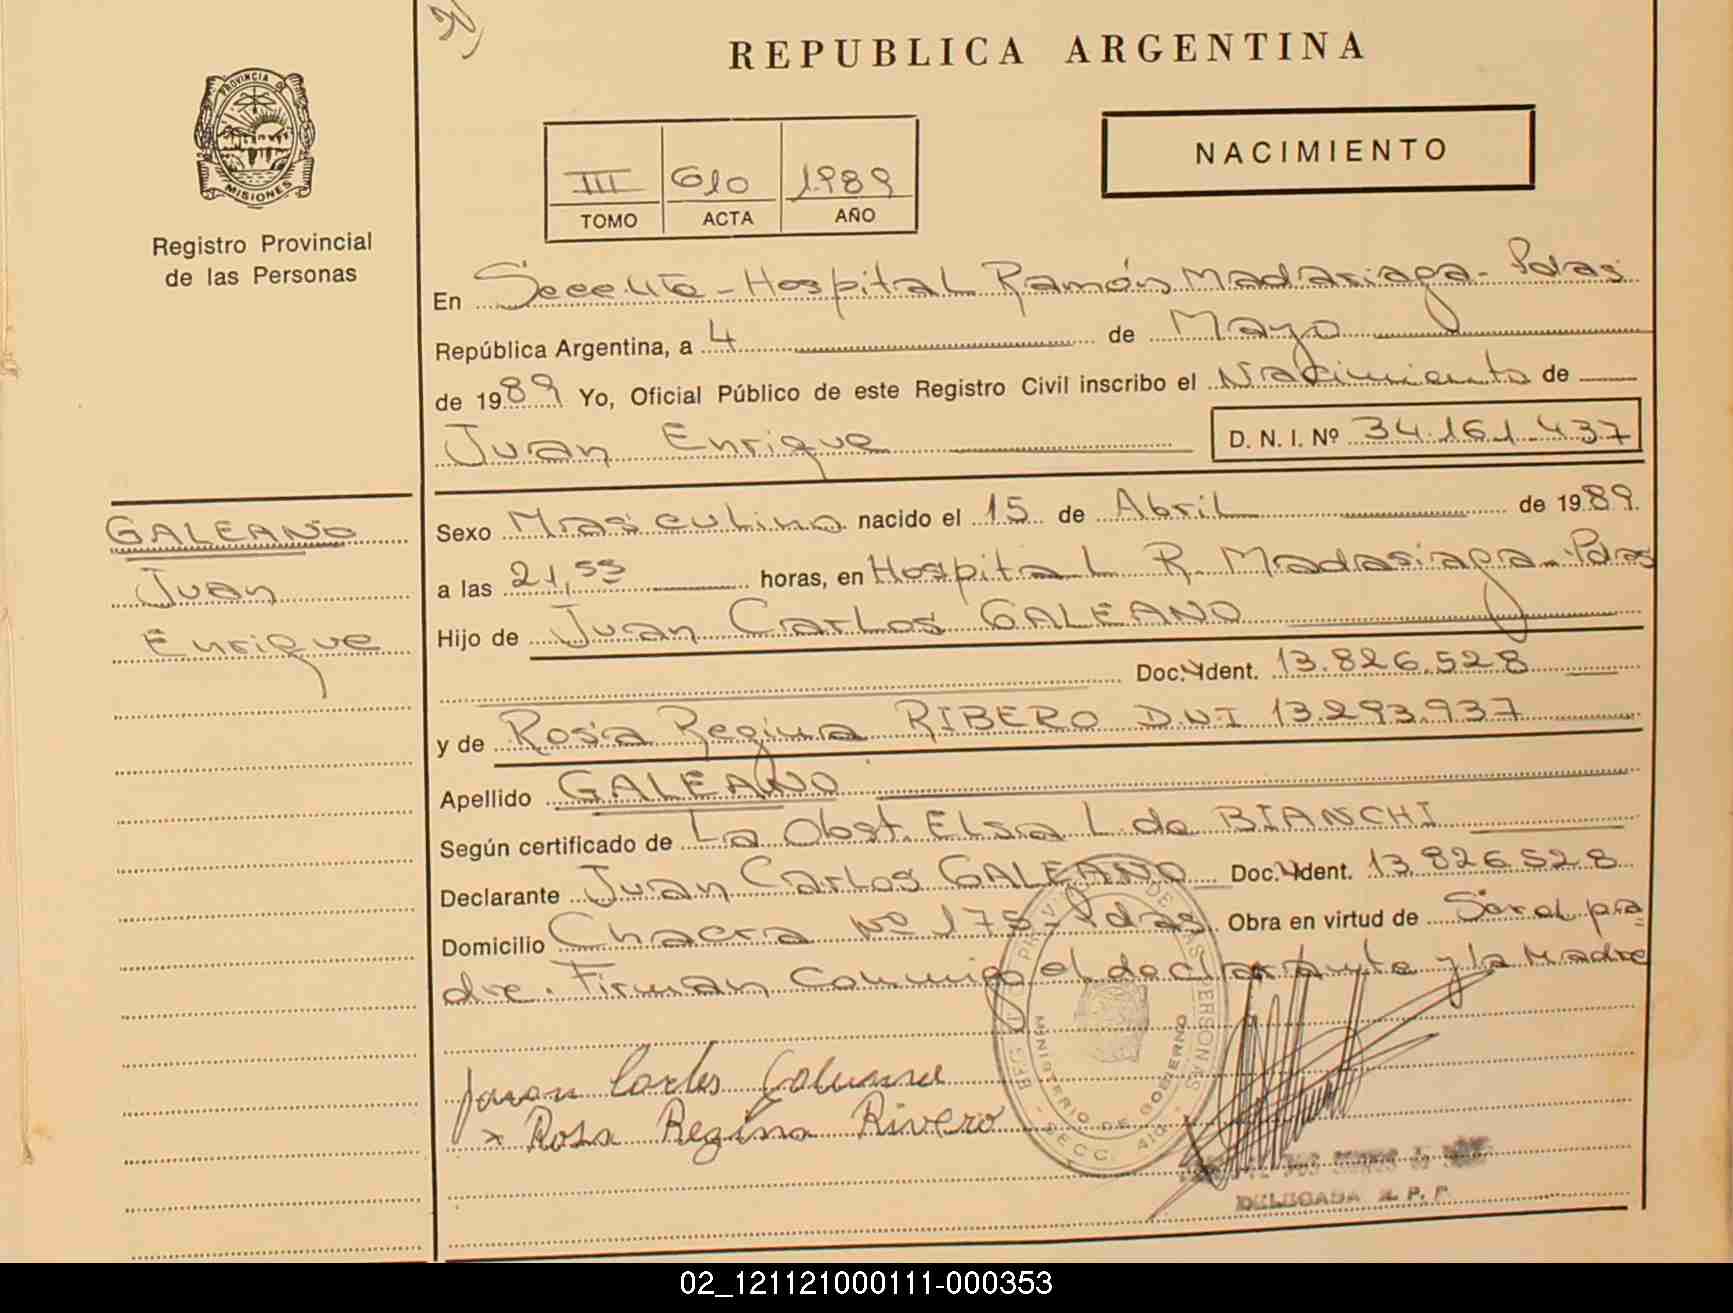 REPUBLICA ARGENTINA
PROVINCIA DE
MISIONES
Registro Provincial
de las Personas
NACIMIENTO
III 610 1989
TOMO ACTA AÑO
En Hospital Ramón Madariaga - Pdas
República Argentina, a 4 de Mayo
de 1989 Yo, Oficial Público de este Registro Civil inscribo el Nacimiento de
Juan Enrique D. N. I. Nº 34.161.437
GALEANO
Juan
Enrique
Sexo Masculino nacido el 15 de Abril de 1989.
a las 21,53 horas, en Hospital R. Madariaga - Pdas
Hijo de Juan Carlos GALEANO
Doc. Ident. 13.826.528
y de Rosa Regina RIBERO DNI 13.293.937
Apellido GALEANO
Según certificado de La Obst. Elsa L. de BIANCHI
Declarante Juan Carlos GALEANO Doc. Ident. 13.826.528
Domicilio Chacra Nº 175 - Pdas. Obra en virtud de Ser el pa
dre. Firman conmigo el declarante y la Madre
Juan Carlos Galeano
x Rosa Regina Rivero
MINISTERIO DE GOBIERNO
DELEGADA R. P. P.
02_121121000111-000353